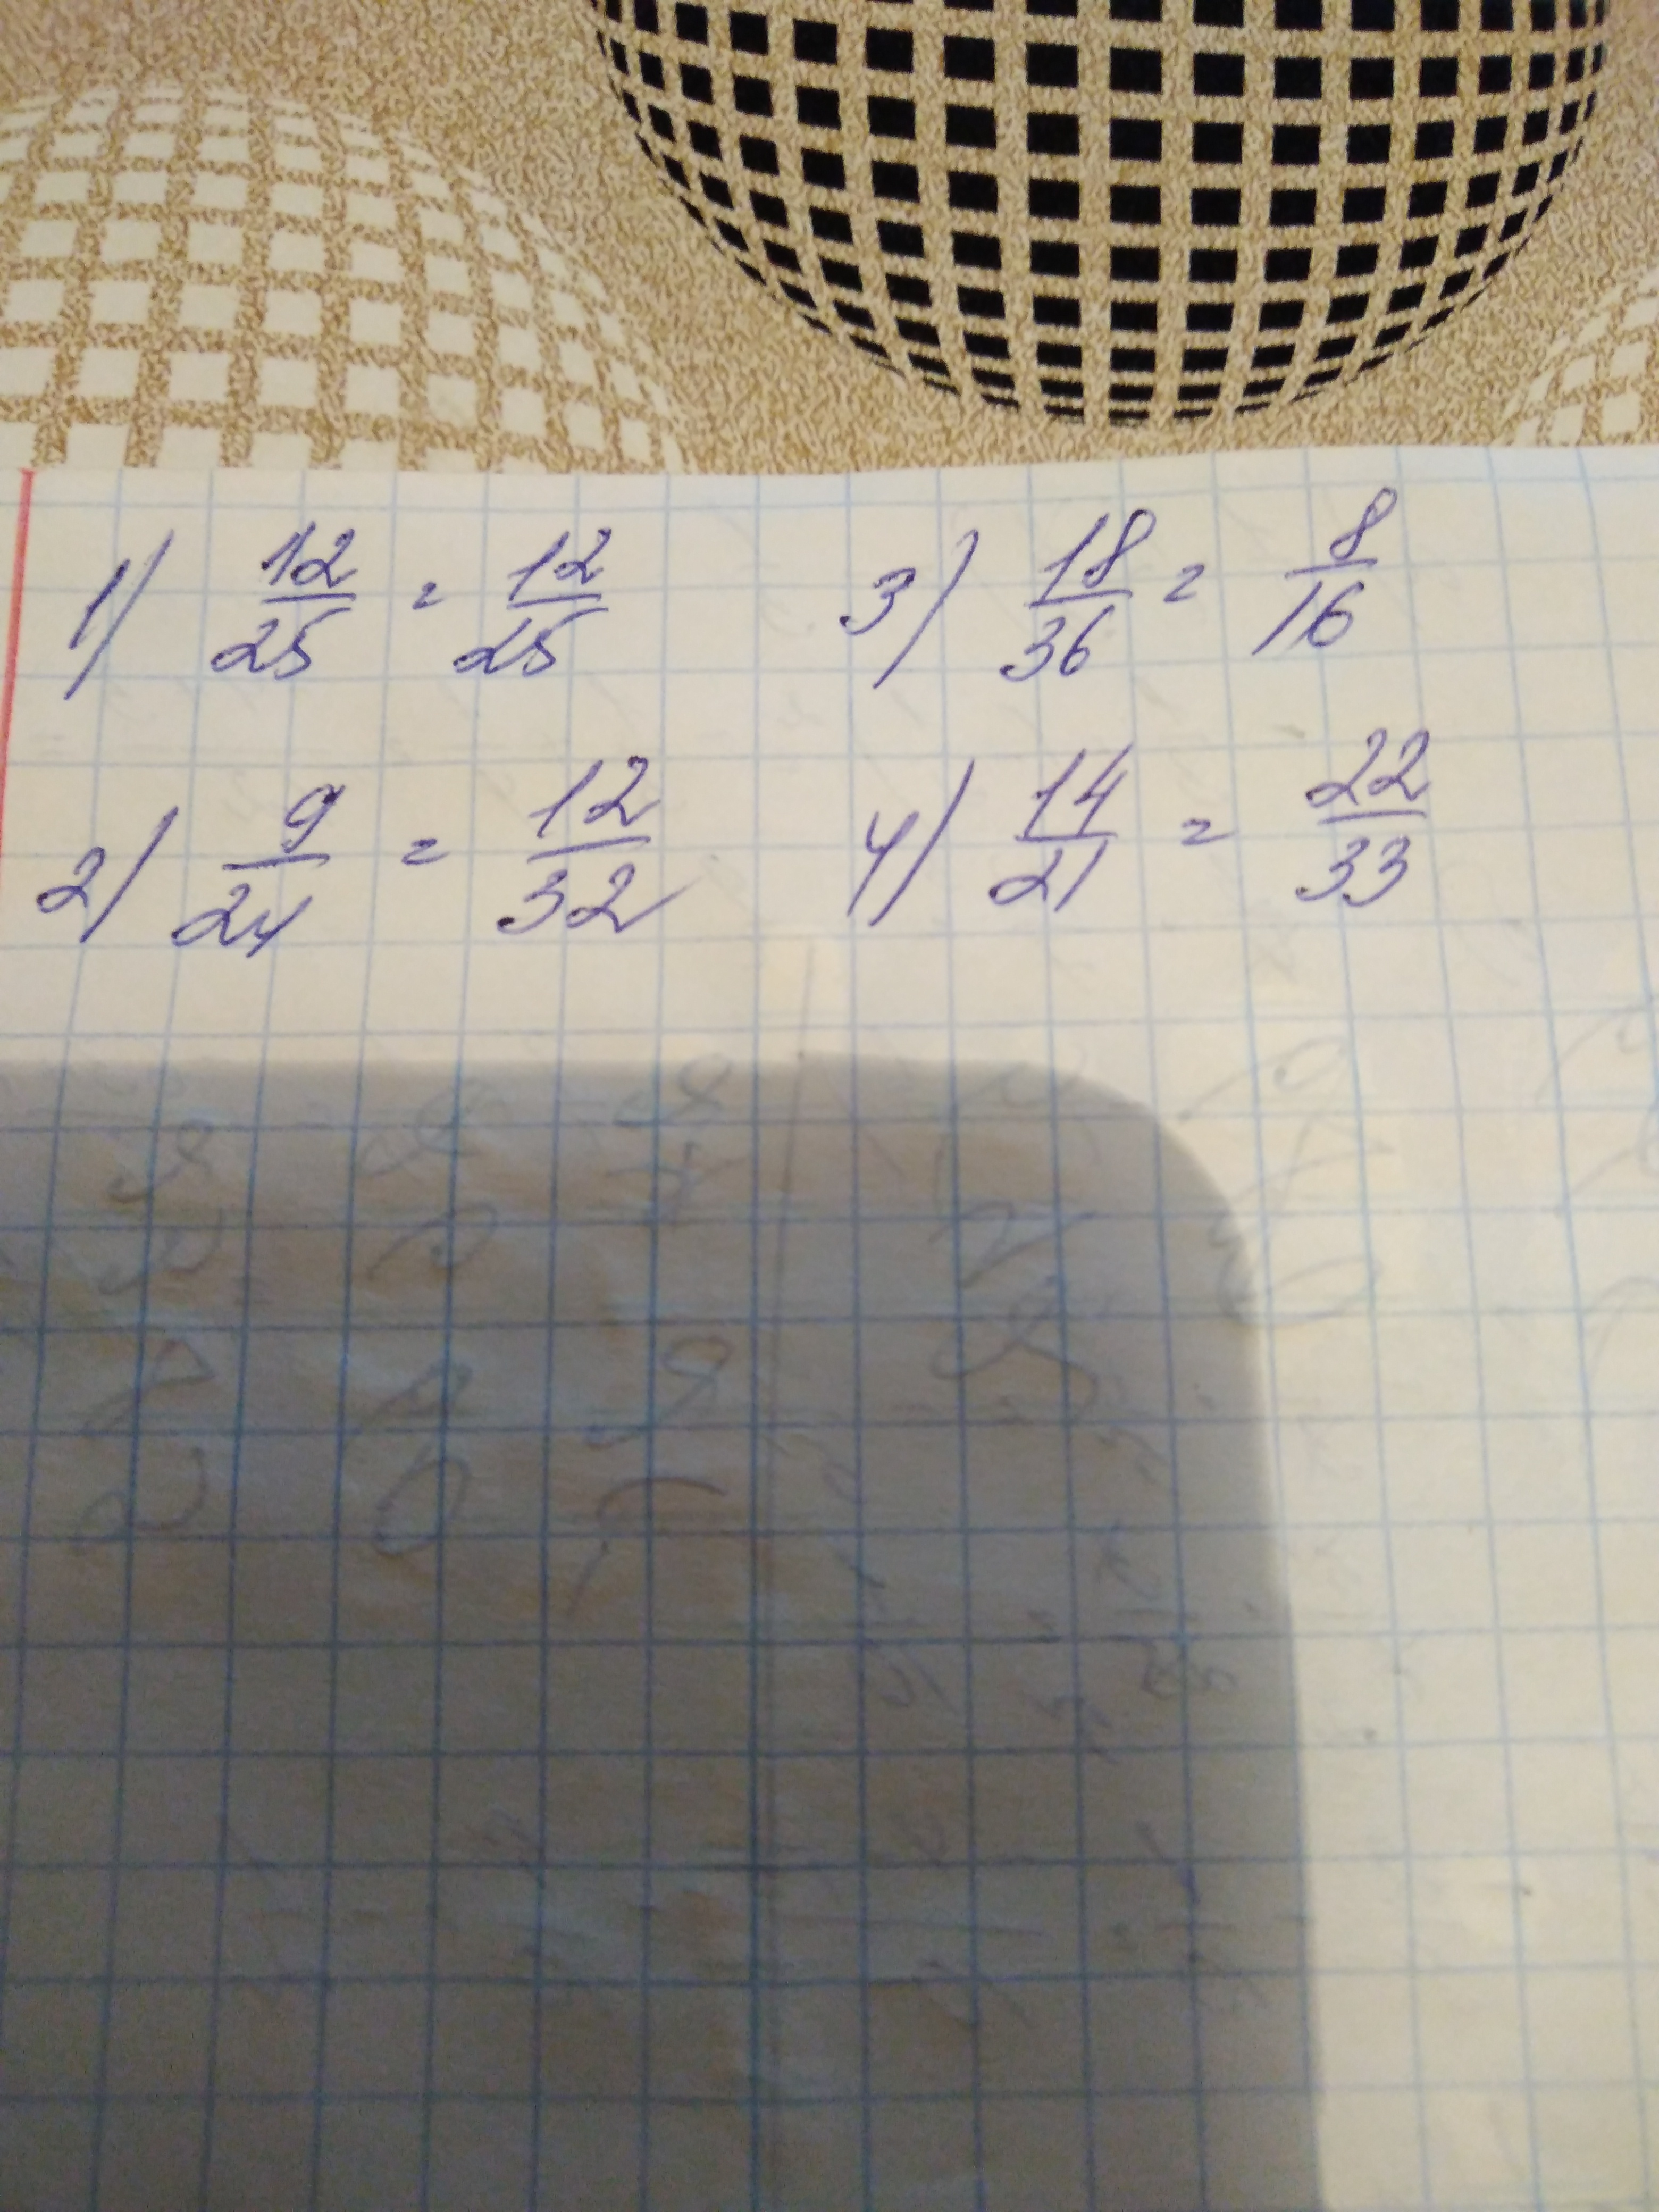 1) 12/25 = 12/25
3) 18/36 = 8/16
2) 9/24 = 12/32
4) 14/21 = 22/33